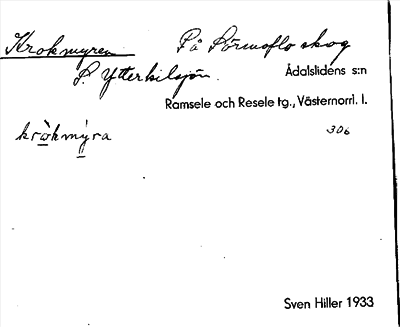 Krokmyren På Sörmoflo skog
S. Ytterkilsjön. Ådalslidens s:n
Ramsele och Resele tg., Västernorrl. l.
kròkmýra 306
Sven Hiller 1933